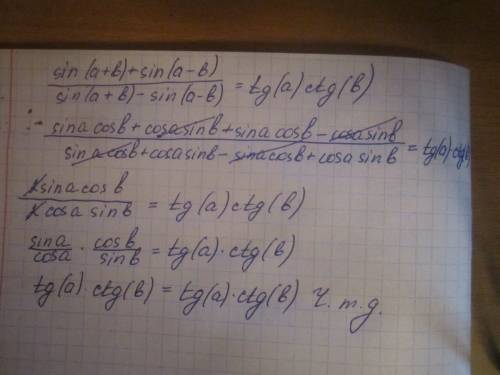 sin(a+b)+sin(a-b) / sin(a+b)-sin(a-b) = tg(a)ctg(b)
sina cosb + cosa sinb + sina cosb - cosa sinb / sina cosb + cosa sinb - sina cosb + cosa sinb = tg(a)ctg(b)
2sina cosb / 2cosa sinb = tg(a)ctg(b)
sina/cosa · cosb/sinb = tg(a)·ctg(b)
tg(a)·ctg(b) = tg(a)·ctg(b) Ч.т.д.